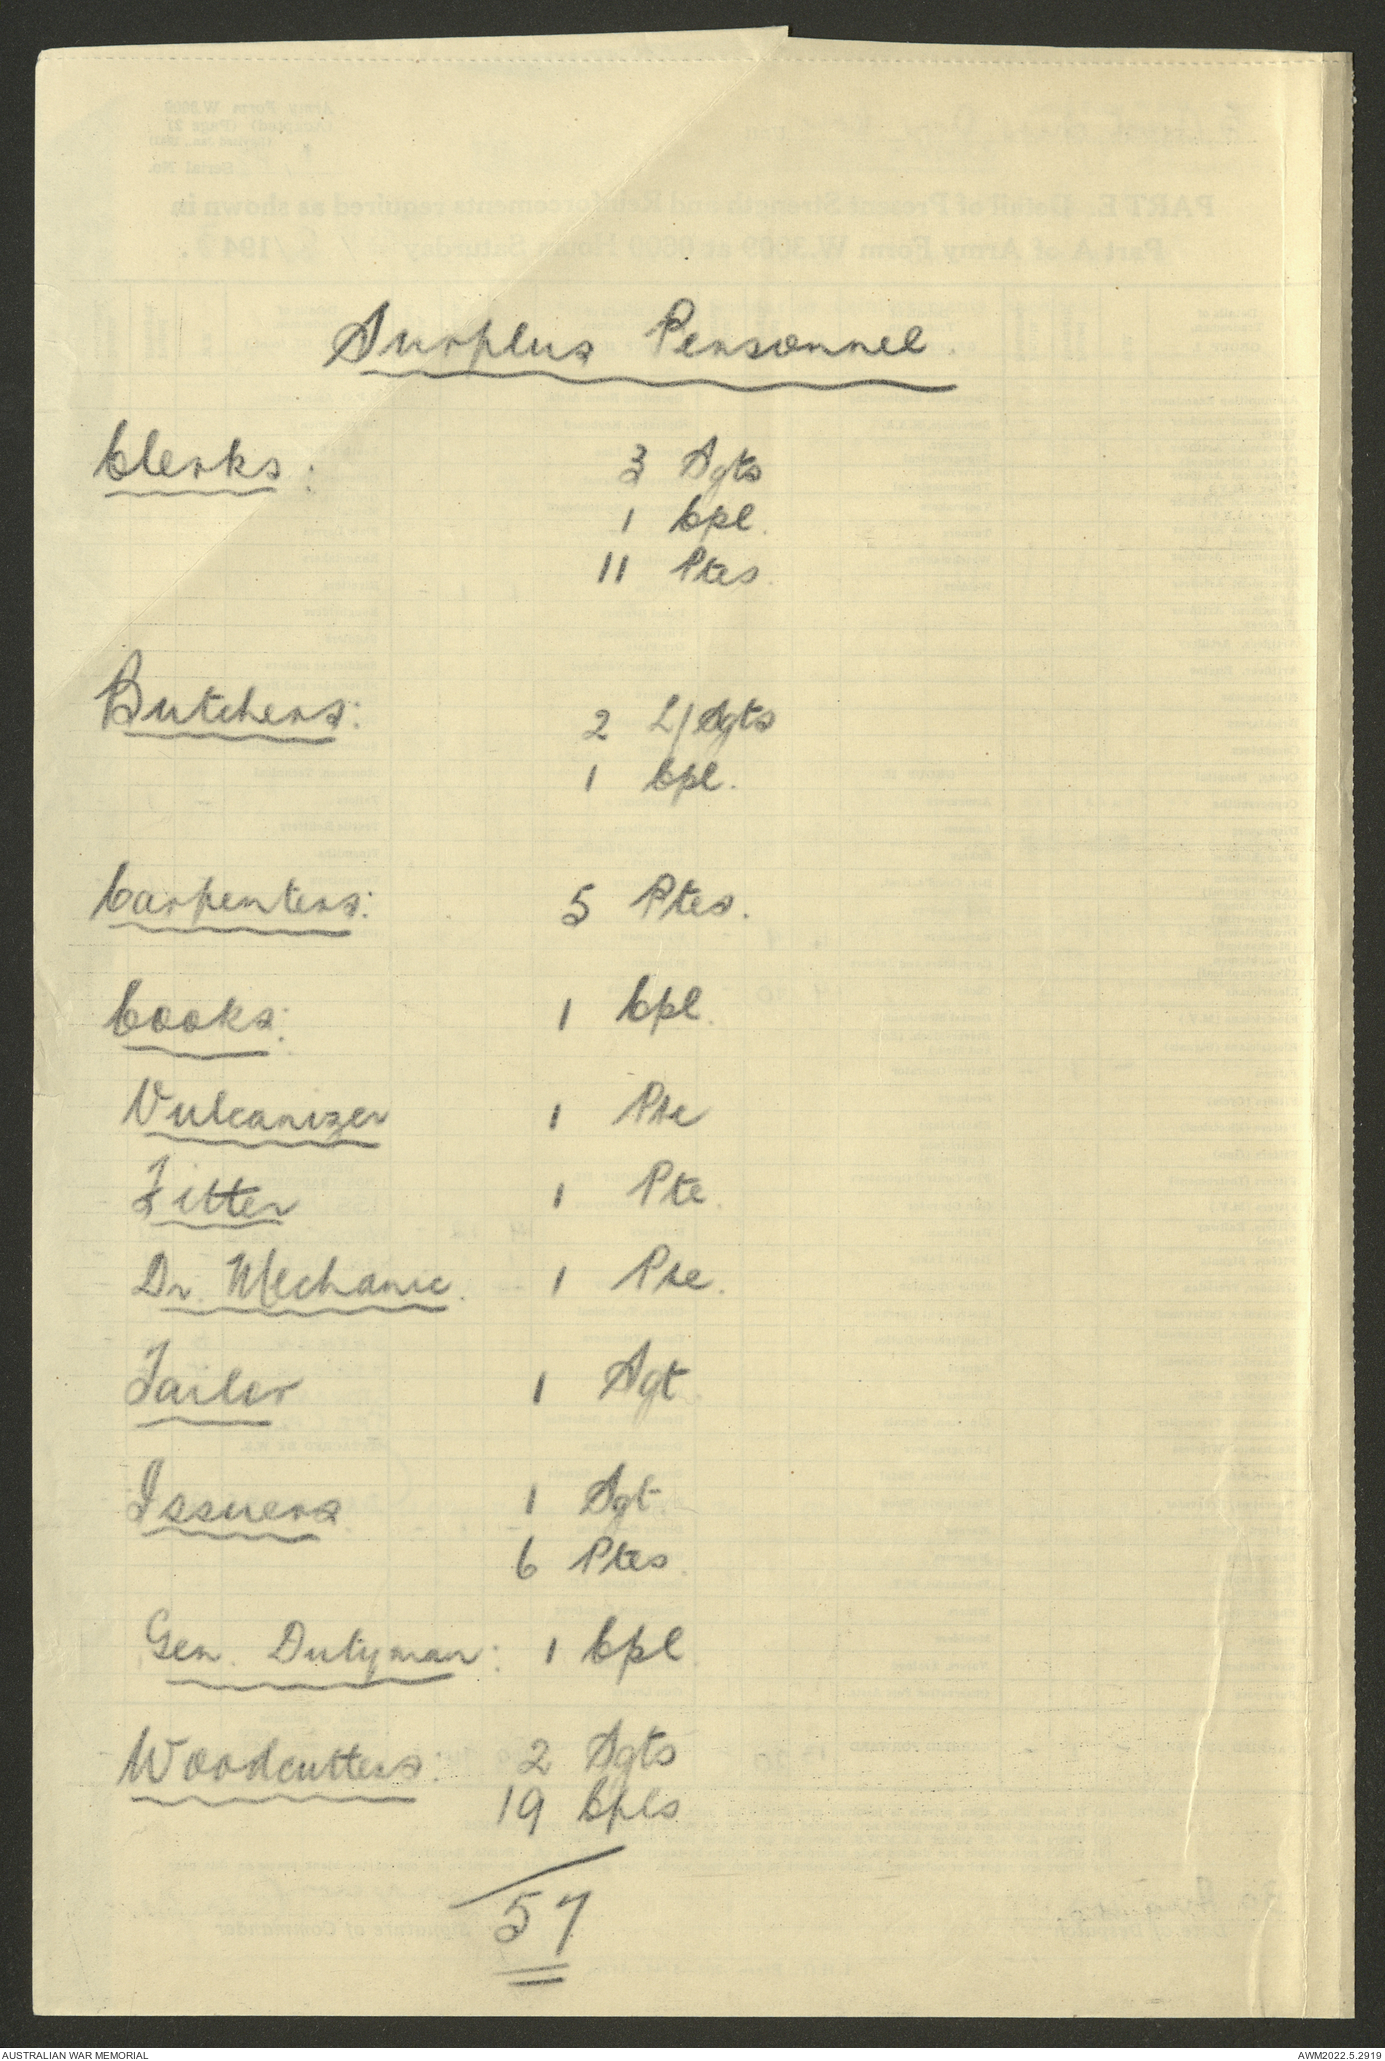 Surplus Personnel.
Clerks: 3 Sgts
1 Cpl.
11 Ptes.
Butchers: 2 L/Sgts
1 Cpl.
Carpenters: 5 Ptes.
Cooks: 1 Cpl.
Vulcanizer 1 Pte
Fitter 1 Pte.
Dr. Mechanic. 1 Pte.
Tailor 1 Sgt.
Issuers. 1 Sgt.
6 Ptes.
Gen. Dutyman: 1 Cpl.
Woodcutters: 2 Sgts
19 Cpls
57
AUSTRALIAN WAR MEMORIAL AWM2022.5.2919